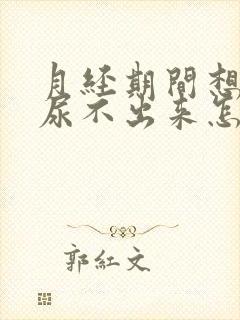 月经期間想
尿不出来怎
郭紅文